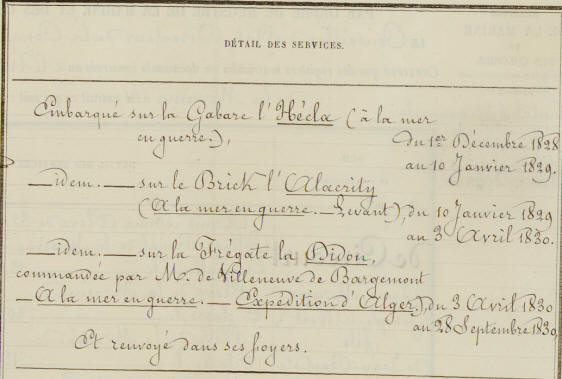 DÉTAIL DES SERVICES.
Embarqué sur la Gabare l'Hécla (à la mer
en guerre.),
du 1er Décembre 1828
au 10 Janvier 1829.
—idem.— sur le Brick l'Alacrity
(A la mer en guerre.—Levant), du 10 Janvier 1829
au 3 Avril 1830.
—idem.— sur la Frégate la Didon,
commandée par M. de Villeneuve de Bargemont
—A la mer en guerre.— Expédition d'Alger.), du 3 Avril 1830
au 28 Septembre 1830.
Et renvoyé dans ses foyers.